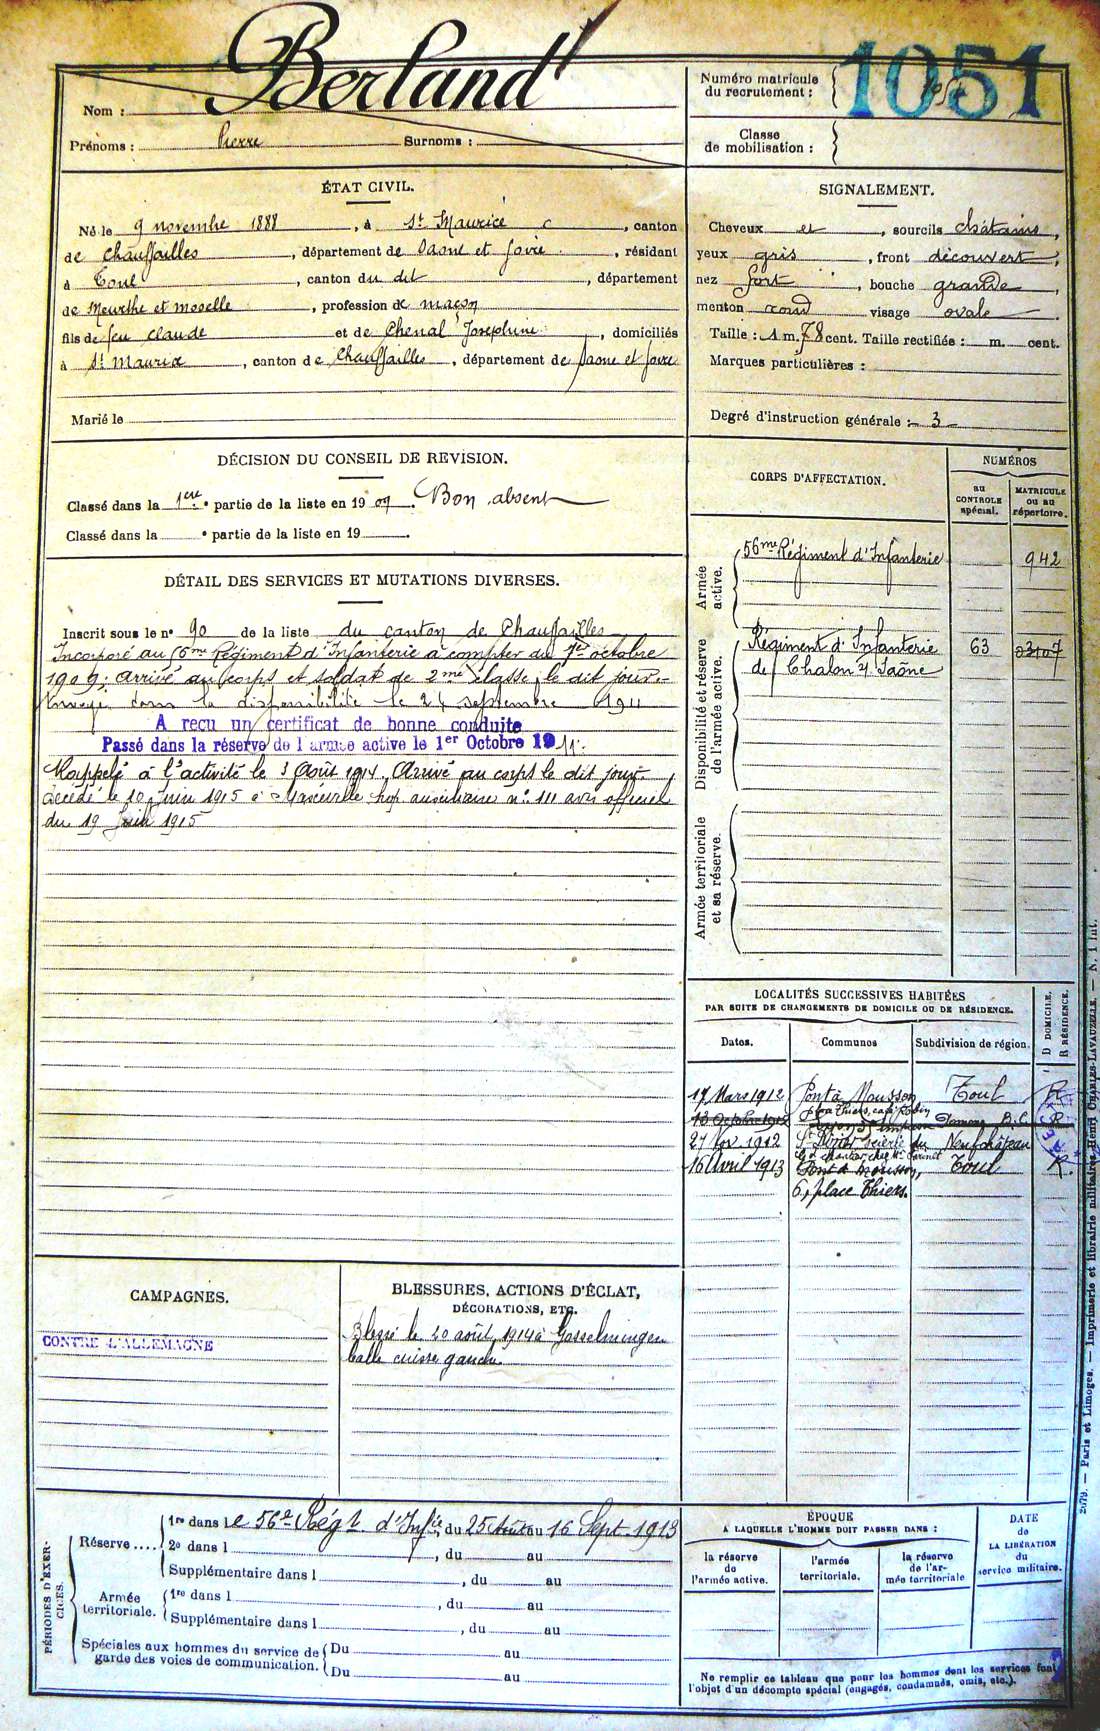 Nom : Berland
Prénoms : Pierre Surnoms :
Numéro matricule
du recrutement : 1051
Classe
de mobilisation :
ÉTAT CIVIL.
Né le 9 novembre 1888, à St Maurice, canton
de Chauffailles, département de Saone et Loire, résidant
à Toul, canton du dit, département
de Meurthe et moselle, profession de maçon
fils de feu Claude et de Chenal Joséphine, domiciliés
à St Maurice, canton de Chauffailles, département de Saone et Loire
Marié le
SIGNALEMENT.
Cheveux et, sourcils châtains,
yeux gris, front découvert,
nez fort, bouche grande,
menton rond visage ovale
Taille : 1 m. 78 cent. Taille rectifiée : m. cent.
Marques particulières :
Degré d'instruction générale : 3
DÉCISION DU CONSEIL DE REVISION.
Classé dans la 1ere partie de la liste en 1909. Bon absent
Classé dans la e partie de la liste en 19
DÉTAIL DES SERVICES ET MUTATIONS DIVERSES.
Inscrit sous le no 90 de la liste du canton de Chauffailles
Incorporé au 56me Régiment d'Infanterie à compter du 1er octobre
1909; arrivé au corps et soldat de 2me classe le dit jour.
Envoyé dans la disponibilité le 24 septembre 1911
A reçu un certificat de bonne conduite
Passé dans la réserve de l'armée active le 1er Octobre 1911.
Rappelé à l'activité le 3 Août 1914, Arrivé au corps le dit jour.
Décédé le 10 juin 1915 à hop auxiliaire no 111 avis officiel
du 19 Juin 1915
CORPS D'AFFECTATION.
NUMÉROS
au
CONTROLE
spécial.
MATRICULE
ou au
répertoire.
Armée
active.
56me Régiment d'Infanterie 942
Disponibilité et réserve
de l'armée active.
Régiment d'Infanterie 63 03107
de Chalon s/ Saône
Armée territoriale
et sa réserve.
LOCALITÉS SUCCESSIVES HABITÉES
PAR SUITE DE CHANGEMENTS DE DOMICILE OU DE RÉSIDENCE.
D DOMICILE.
R RÉSIDENCE.
Dates. Communes Subdivision de région.
17 Mars 1912 Pont à Mousson Toul R
place Thiers, café Robin
13 Octobre 1912 R
27 Nov. 1912 Neufchâteau
16 Avril 1913 Pont à Mousson, Toul R.
6, place Thiers.
CAMPAGNES.
CONTRE L'ALLEMAGNE
BLESSURES, ACTIONS D'ÉCLAT,
DÉCORATIONS, ETC.
Blessé le 20 août 1914 à Gosselmingen
balle cuisse gauche.
PÉRIODES D'EXERCICES.
Réserve .... 1re dans le 56e Régt d'Infie, du 25 Août au 16 Sept. 1913
2e dans l , du au
Supplémentaire dans l , du au
Armée
territoriale. 1re dans l , du au
Supplémentaire dans l , du au
Spéciales aux hommes du service de
garde des voies de communication. Du au
Du au
ÉPOQUE
A LAQUELLE L'HOMME DOIT PASSER DANS :
la réserve
de
l'armée active.
l'armée
territoriale.
la réserve
de l'ar-
mée territoriale
DATE
de
LA LIBÉRATION
du
service militaire.
Ne remplir ce tableau que pour les hommes dont les services font
l'objet d'un décompte spécial (engagés, condamnés, omis, etc.).
2079. — Paris et Limoges. — Imprimerie et librairie militaires Henri CHARLES-LAVAUZELLE. — N. 1 int.